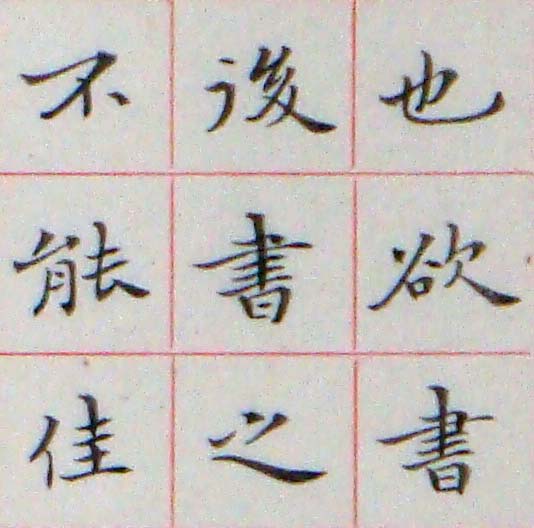 也欲書
後書之
不能佳